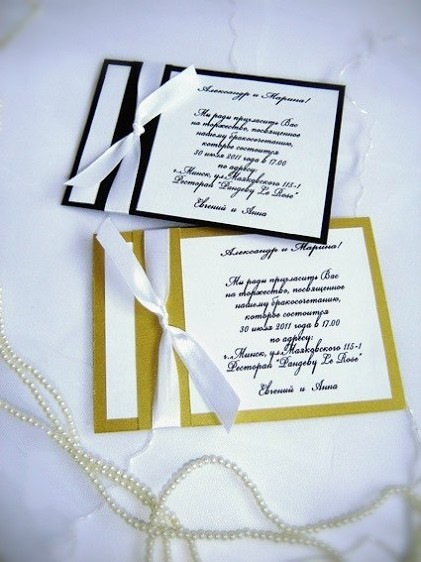 Александр и Марина!
Мы рады пригласить Вас
на торжество, посвященное
нашему бракосочетанию,
которое состоится
30 июля 2011 года в 17.00
по адресу:
г.Минск, ул.Маяковского 115-1
Ресторан "Рандеву Le Rose"
Евгений и Анна
Александр и Марина!
Мы рады пригласить Вас
на торжество, посвященное
нашему бракосочетанию,
которое состоится
30 июля 2011 года в 17.00
по адресу:
г.Минск, ул.Маяковского 115-1
Ресторан "Рандеву Le Rose"
Евгений и Анна